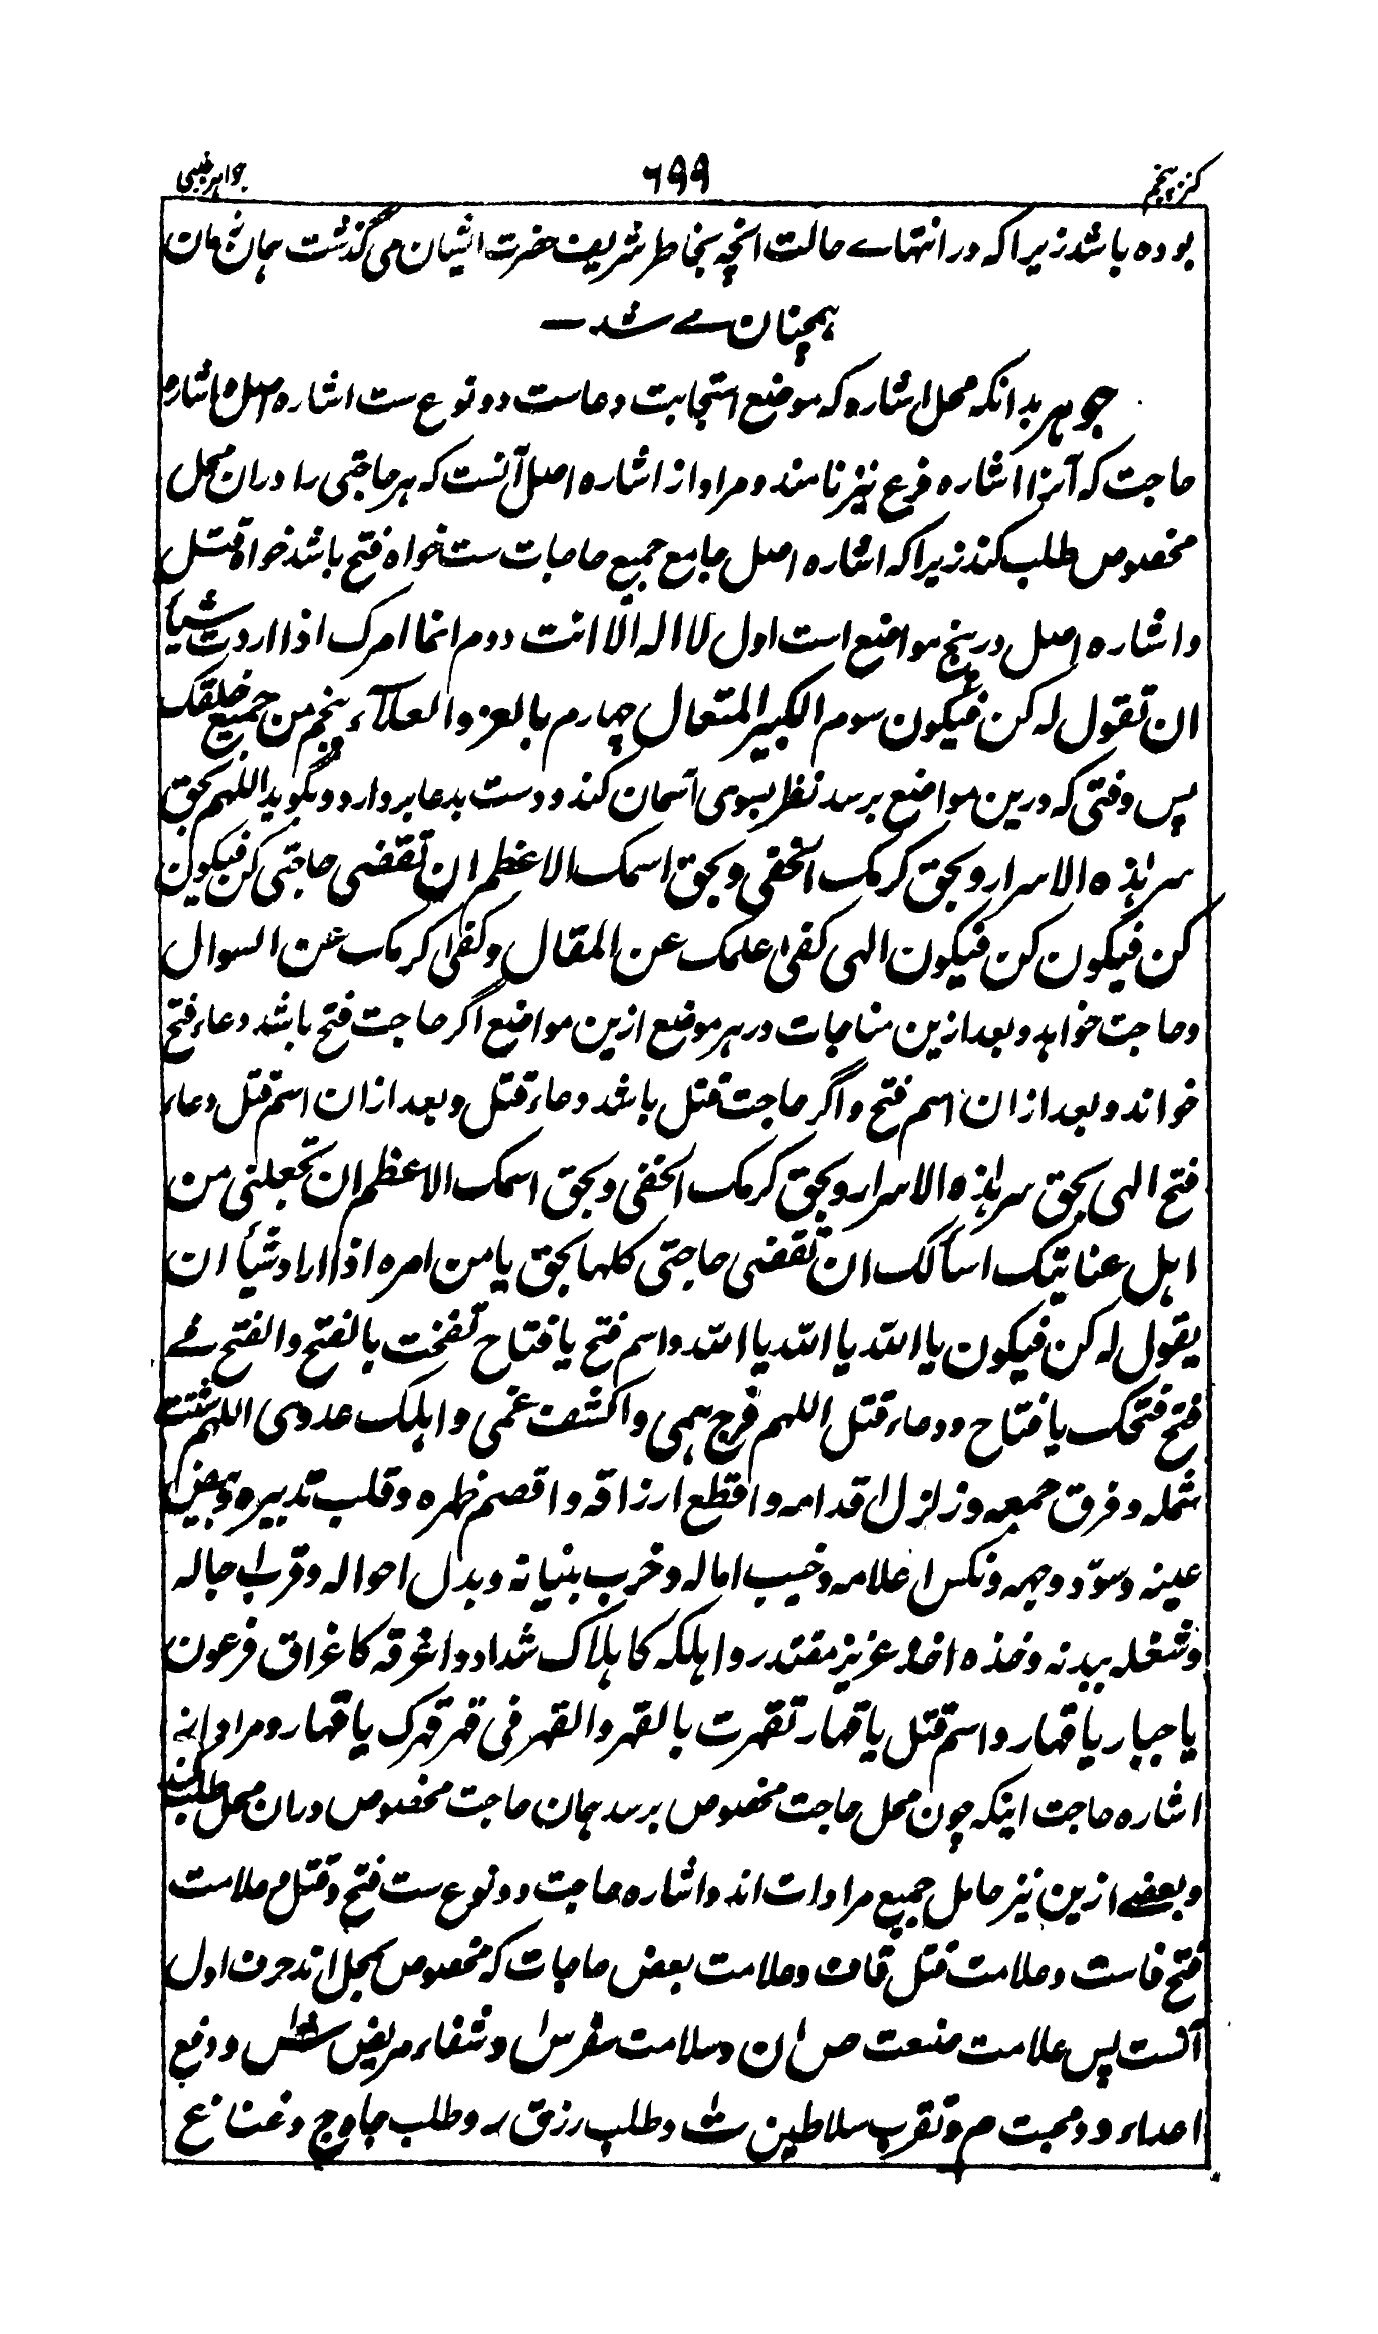 کنز پنجم ٦٩٩ جواہر غیبی
بوده باشد زیرا که در انتہاے حالت انچه بخاطر شریف حضرت ایشان می گذشت ہمان زمان
ہمچنان مے شد ـــ
جوہر بدانکه محل اشاره که موضع استجابت دعاست دو نوع ست اشاره اصل و اشاره
حاجت که آنرا اشاره فرع نیز نامند و مراد از اشاره اصل آنست که ہر حاجتی را دران محل
مخصوص طلب کند زیرا که اشاره اصل جامع جمیع حاجات ست خواه فتح باشد خواه قتل
و اشاره اصل در پنج مواضع است اول لا اله الا انت دوم انما امرک اذا اردت شیأ
ان تقول له کن فیکون سوم الکبیر المتعال چہارم بالعز و العلاء پنجم من جمیع خلقک
پس وقتی که درین مواضع برسد نظر بسوی آسمان کند و دست بدعا بردارد و بگوید اللہم بحق
سر ہذه الاسرار و بحق کرمک الخفی و بحق اسمک الاعظم ان تقضی حاجتی کن فیکون
کن فیکون کن فیکون الہی کفی علمک عن المقال و کفی کرمک عن السوال
و حاجت خواہد و بعد ازین مناجات در ہر موضع ازین مواضع اگر حاجت فتح باشد دعاء فتح
خواند و بعد ازان اسم فتح و اگر حاجت قتل باشد دعاء قتل و بعد ازان اسم قتل دعاء
فتح الہی بحق سر ہذه الاسرار و بحق کرمک الخفی و بحق اسمک الاعظم ان تجعلنی من
اہل عنایتک اسألک ان تقضی حاجتی کلہا بحق یا من امره اذا اراد شیأ ان
یقول له کن فیکون یا الله یا الله یا الله و اسم فتح یا فتاح تفتحت بالفتح و الفتح فے
فتح فتحک یا فتاح و دعاء قتل اللہم فرج ہمی و اکشف غمی و اہلک عدوی اللہم شتت
شمله و فرق جمعه و زلزل اقدامه و اقطع ارزاقه و اقصم ظہره و قلب تدبیره و بیض
عینه و سوّد وجہه و نکس اعلامه و خیب اماله و خرب بنیانه و بدل احواله و قرب اجاله
و شغله ببدنه و خذه اخذ عزیز مقتدر و اہلکه کاہلاک شداد و اغرقه کاغراق فرعون
یا جبار یا قہار و اسم قتل یا قہار تقہرت بالقہر و القہر فی قہر قہرک یا قہار و مراد از
اشاره حاجت اینکه چون محل حاجت مخصوص برسد ہمان حاجت مخصوص دران محل طلب کند
و بعضے ازین نیز حامل جمیع مرادات اند و اشاره حاجت دو نوع ست فتح و قتل و علامت
فتح فاست و علامت قتل قاف و علامت بعض حاجات که مخصوص بمحل اند حرف اول
آنست پس علامت منعت ص ان و سلامت سفر س و شفاء مریض ش و دفع
اعداء و و محبت م و تقرب سلاطین ت و طلب رزق ر و طلب جاه ج و غنا غ